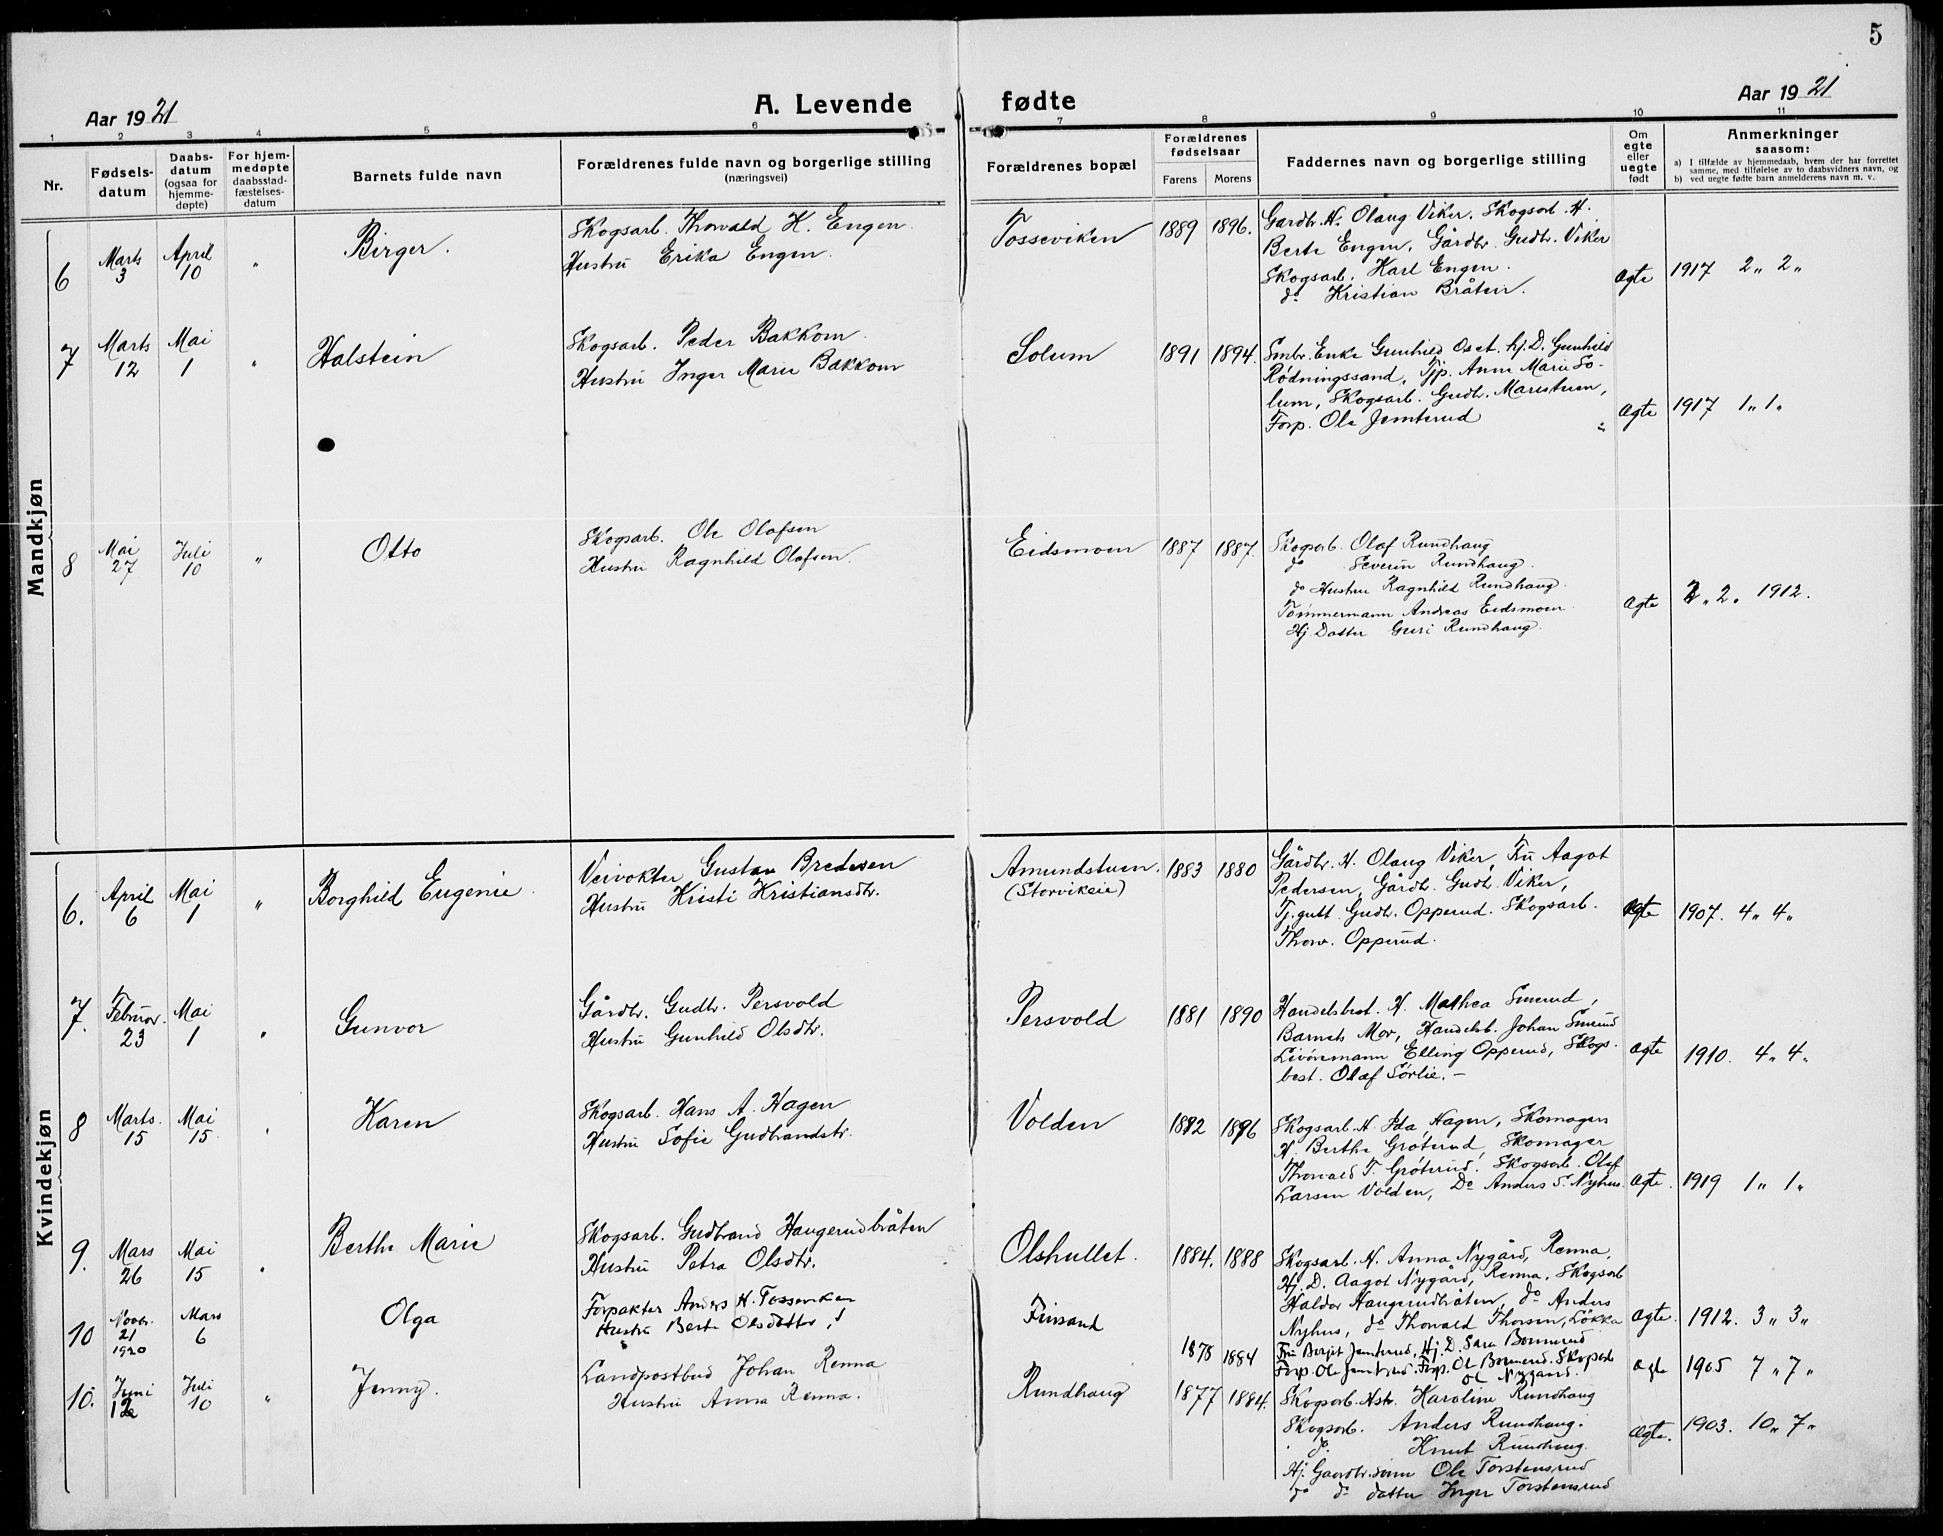 5
Aar 1921
A. Levende fødte
Aar 1921
1 2 3 4 5 6 7 8 9 10 11
Nr.
Fødsels-
datum
Daabs-
datum
(ogsaa for
hjemme-
døpte)
For hjem-
medøpte
daabsstad-
fæstelses-
datum
Barnets fulde navn
Forældrenes fulde navn og borgerlige stilling
(næringsvei)
Forældrenes bopæl
Forældrenes
fødselsaar
Farens Morens
Faddernes navn og borgerlige stilling
Om
egte
eller
uegte
født
Anmerkninger
saasom:
a) I tilfælde av hjemmedaab, hvem der har forrettet
samme, med tilføielse av to daabsvidners navn, og
b) ved uegte fødte barn anmelderens navn m. v.
Mandkjøn
6 Marts 3 April 10 „ Birger.
Skogsarb. Thorvald H. Engen.
Hustru Erika Engen.
Tosseviken 1889 1896.
Gardbr. H. Olaug Viker. Skogsarb. H.
Berte Engen, Gårdbr. Gudbr. Viker
Skogsarb. Karl Engen.
do Kristian Bråten.
Ægte 1917 2„ 2„
7 Marts 12 Mai 1 „ Halstein
Skogsarb. Peder Bakkom
Hustru Inger Marie Bakkom
Solum 1891 1894.
Smbr. Enke Gunhild Oset. hj. D. Gunhild
Rødningssand, Tjp. Anne Marie So-
lum, Skogsarb. Gudbr. Maristuen,
Forp. Ole Jemterud „
Ægte 1917 1„ 1„
8 Mai 27 Juli 10 „ Otto
Skogsarb. Ole Olafsen
Hustru Ragnhild Olafsen.
Eidsmoen 1887 1887.
Skogsarb. Olaf Rundhaug
do Severin Rundhaug.
do Hustru Ragnhild Rundhaug.
Tømmermann Andreas Eidsmoen.
Hj. Datter Guri Rundhaug.
Ægte 2„ 2„ 1912.
Kvindekjøn
6. April 6 Mai 1 „ Borghild Eugenie.
Veivokter Gustav Bredesen
Hustru Kristi Kristiansdtr.
Amundstuen. 1883 1880
(Storvikeie)
Gårdbr. H. Olaug Viker, Fru Aagot
Pedersen, Gårdb. Gudb. Viker,
Tj. gutt Gudb. Opperud. Skogsarb.
Thorv. Opperud.
Ægte 1907. 4„ 4„
7. Februar. 23 Mai 1 „ Gunvor
Gårdbr. Gudbr. Persvold
Hustru Gunhild Olsdtr.
Persvold 1881 1890
Handelsbest. H. Mathea Smerud,
Barnets Mor, Handelsb. Johan Smerud
Elling Opperud, Skogs-
best. Olaf Sørlie. -
Ægte 1910. 4„ 4„
8 Marts. 15 Mai 15. „ Karen
Skogsarb. Hans A. Hagen
Hustru Sofie Gudbrandstr.
Volden 1892 1896
Skogsarb. H. Ida Hagen, Skomagen
H. Berthe Grøterud, Skomager
Thorvald T. Grøterud. Skogsarb. Olaf
Larsen Volden, Do Anders S. Nyhus.
Ægte. 1919 1„ 1„
9. Mars 26 Mai 15 „ Berthe Marie
Skogsarb. Gudbrand Haugerudbråten
Hustru Petra Olsdtr.
Olshullet. 1884. 1888
Skogsarb. H. Anna Nygård, Renna,
Hj. D. Aagot Nygård, Renna. Skogsarb
Haldor Haugerudbråten, do Anders
Nyhus, do Thorvald Thorsen, Løkka
Ægte. 1912. 3„ 3„
10 Novbr. 21 1920 Mars 6 Olga
Forpakter Anders H. Tosseviken
Hustru Berte Olsdatter
Finsand 1878 1884
Fru Bergit Jemterud, Hj. D. Sara Bonnerud
Forp. Ole Jemterud. Forp. Ol Bonnerud. Skogsarb
Ol Nygaard.
Ægte 1905 7„ 7„
10. Juni 12 Juli 10 „ Jenny.
Landpostbud Johan Renna
Hustru Anna Renna.
Rundhaug 1877 1884.
Skogsarb. Hstr. Karoline Rundhaug
Skogsarb. Anders Rundhaug.
do Knut Rundhaug.
Hj. Gaardbr. sønn Ole Torstensrud
do do datter Inger Torstensrud
Ægte. 1903. 10„ 7„